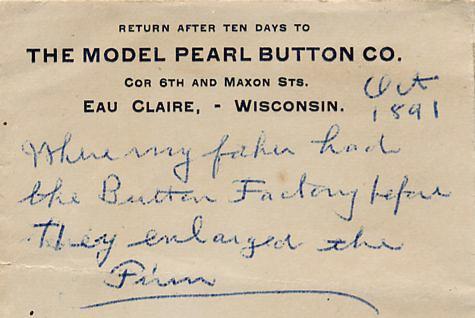 RETURN AFTER TEN DAYS TO
THE MODEL PEARL BUTTON CO.
COR 6TH AND MAXON STS.
EAU CLAIRE, - WISCONSIN.
Oct
1891
Where my father had
the Button Factory before
They enlarged the
Firm